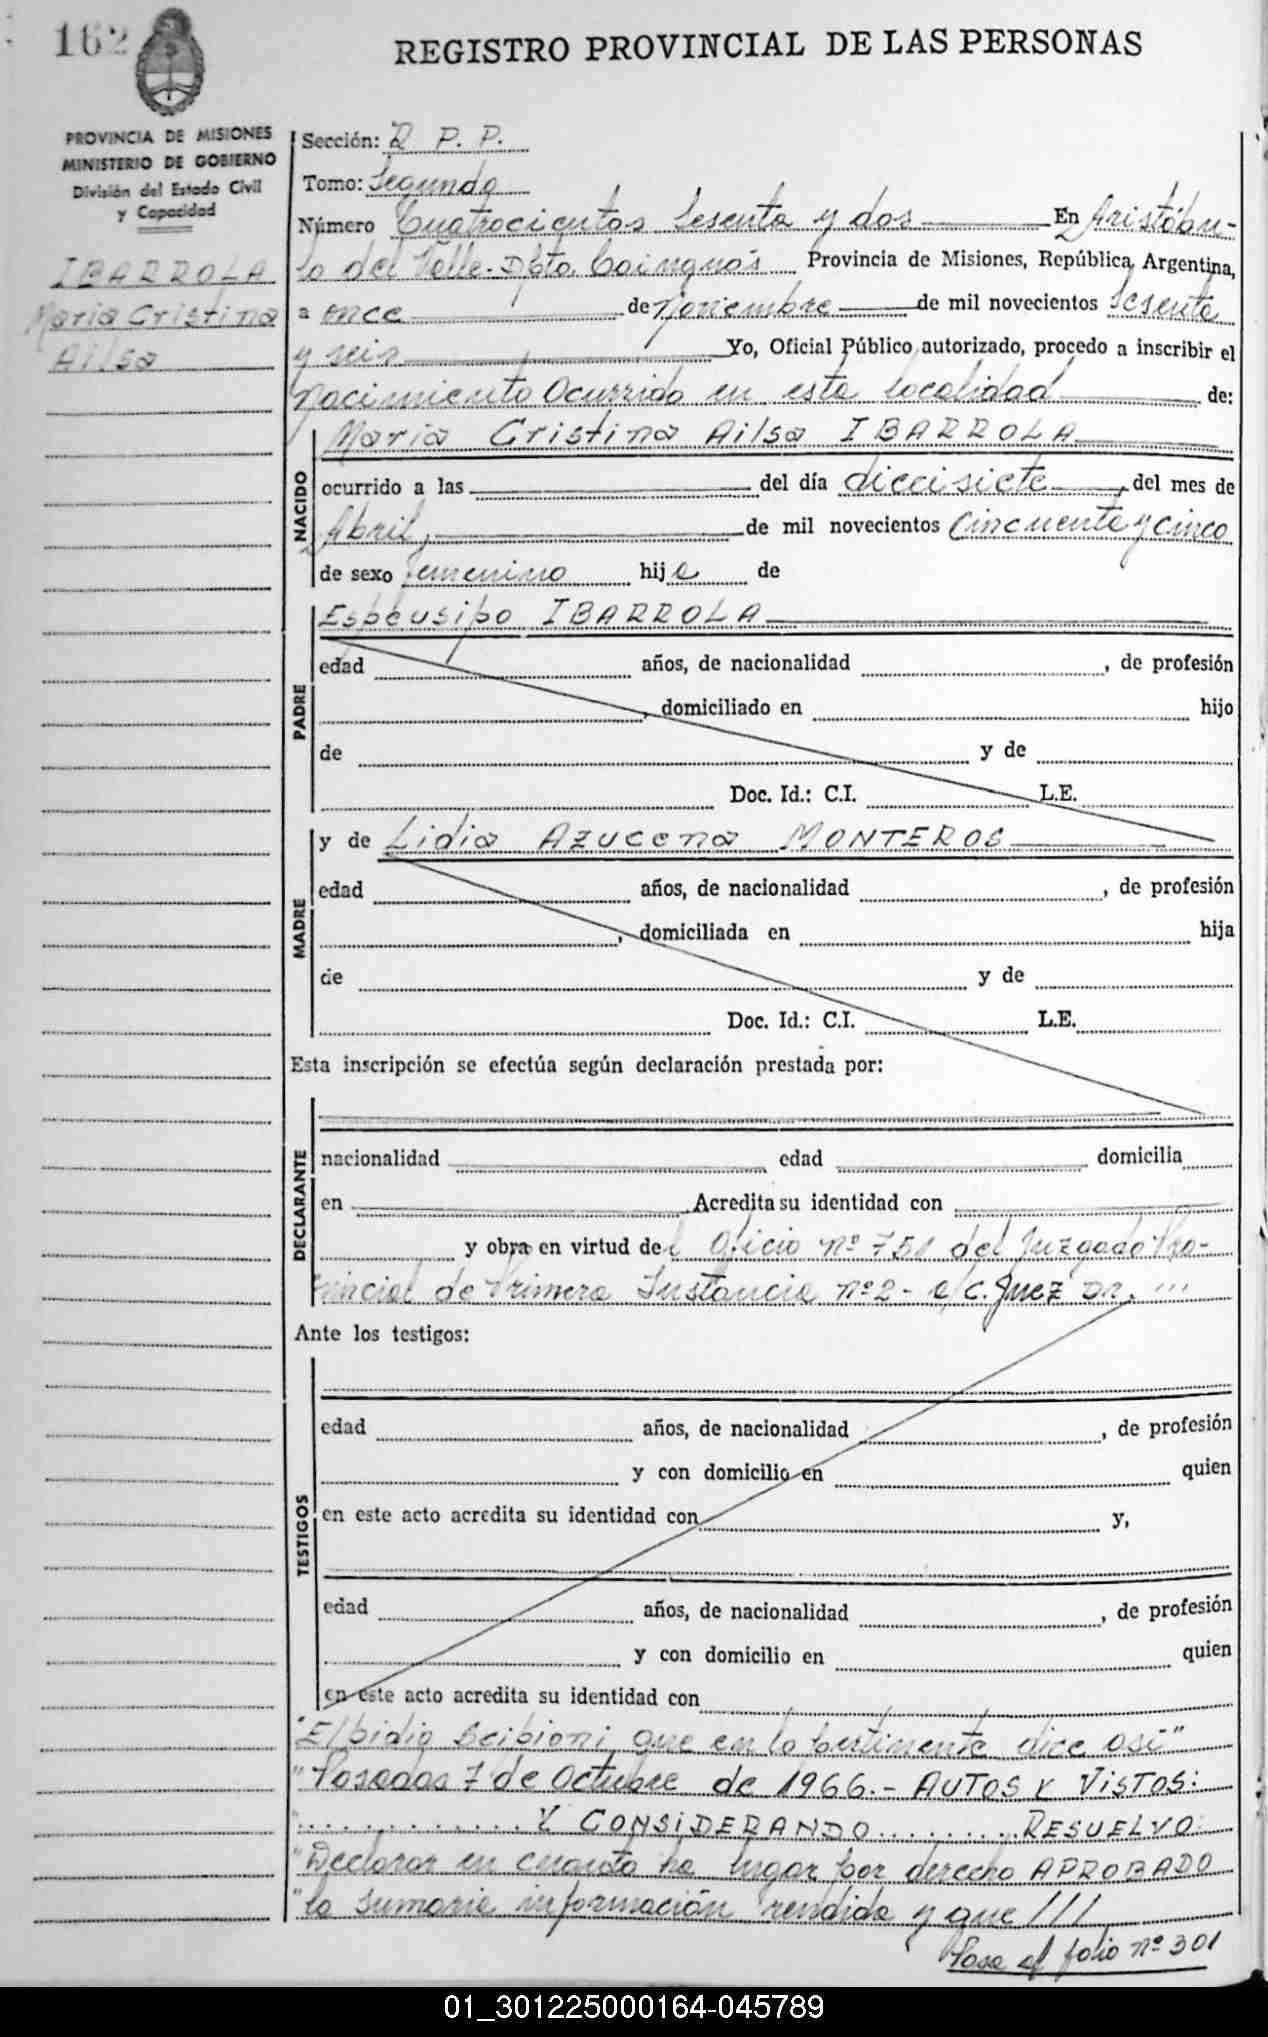 162
REGISTRO PROVINCIAL DE LAS PERSONAS
PROVINCIA DE MISIONES
MINISTERIO DE GOBIERNO
División del Estado Civil
y Capacidad
IBARROLA
Maria Cristina
Ailsa
Sección: R P. P.
Tomo: Segundo
Número Cuatrocientos Sesenta y dos En Aristóbu-
lo del Valle-Dpto Cainguás Provincia de Misiones, República Argentina,
a once de Noviembre de mil novecientos Sesenta
y seis Yo, Oficial Público autorizado, procedo a inscribir el
Nacimiento Ocurrido en esta localidad de:
NACIDO
Maria Cristina Ailsa IBARROLA
ocurrido a las del día diecisiete, del mes de
Abril, de mil novecientos Cincuenta y Cinco
de sexo femenino hija de
PADRE
Espeusipo IBARROLA
edad años, de nacionalidad , de profesión
, domiciliado en hijo
de y de
Doc. Id.: C.I. L.E.
MADRE
y de Lidia AZUCENA MONTEROS
edad años, de nacionalidad , de profesión
, domiciliada en hija
de y de
Doc. Id.: C.I. L.E.
Esta inscripción se efectúa según declaración prestada por:
DECLARANTE
nacionalidad edad domicilia
en Acredita su identidad con
y obra en virtud del Oficio nº 751 del Juzgado Pro-
vincial de Primera Instancia nº 2- a/c. Juez Dr. '''
Ante los testigos:
TESTIGOS
edad años, de nacionalidad , de profesión
y con domicilio en quien
en este acto acredita su identidad con y,
edad años, de nacionalidad , de profesión
y con domicilio en quien
en este acto acredita su identidad con
"Elpidio Scipioni que en lo pertinente dice así"
"Posadas 7 de Octubre de 1966.- AUTOS Y VISTOS:
"............. Y CONSIDERANDO......... RESUELVO:
"Declarar en cuanto ha lugar por derecho APROBADO
"la sumaria información rendida y que ///
Pasa al folio nº 301
01_301225000164-045789